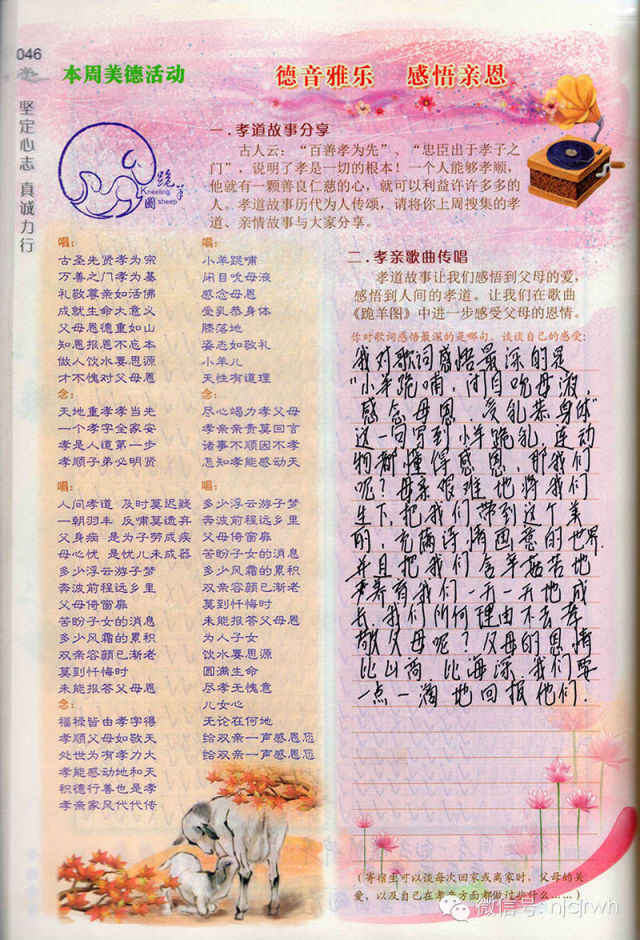 046
坚定心志 真诚力行
本周美德活动
德音雅乐 感悟亲恩
跪羊
Kneeling
圖 sheep
一.孝道故事分享
古人云：“百善孝为先”、“忠臣出于孝子之
门”，说明了孝是一切的根本！一个人能够孝顺，
他就有一颗善良仁慈的心，就可以利益许许多多的
人。孝道故事历代为人传颂，请将你上周搜集的孝
道、亲情故事与大家分享。
唱：
古圣先贤孝为宗
万善之门孝为基
礼敬尊亲如活佛
成就生命大意义
父母恩德重如山
知恩报恩不忘本
做人饮水要思源
才不愧对父母恩
念：
天地重孝孝当先
一个孝字全家安
孝是人道第一步
孝顺子弟必明贤
唱：
人间孝道 及时莫迟疑
一朝羽丰 反哺莫遗弃
父身病 是为子劳成疾
母心忧 是忧儿未成器
多少浮云游子梦
奔波前程远乡里
父母倚窗扉
苦盼子女的消息
多少风霜的累积
双亲容颜已渐老
莫到忏悔时
未能报答父母恩
念：
福禄皆由孝字得
孝顺父母如敬天
处世为有孝力大
孝能感动地和天
积德行善也是孝
孝亲家风代代传
唱：
小羊跪哺
闭目吮母液
感念母恩
受乳恭身体
膝落地
姿态如敬礼
小羊儿
天性有道理
念：
尽心竭力孝父母
孝亲亲贵莫回言
诸事不顺因不孝
怎知孝能感动天
唱：
多少浮云游子梦
奔波前程远乡里
父母倚窗扉
苦盼子女的消息
多少风霜的累积
双亲容颜已渐老
莫到忏悔时
未能报答父母恩
为人子女
饮水要思源
圆满生命
尽孝无愧意
儿女心
无论在何地
给双亲一声感恩您
给双亲一声感恩您
二.孝亲歌曲传唱
孝道故事让我们感悟到父母的爱，
感悟到人间的孝道。让我们在歌曲
《跪羊图》中进一步感受父母的恩情。
你对歌词感悟最深的是哪句，谈谈自己的感受：
我对歌词感悟最深的是
“小羊跪哺，闭目吮母液，
感念母恩，受乳恭身体”
这一句写到小羊跪乳，连动
物都懂得感恩，那我们
呢？母亲艰难地将我们
生下，把我们带到这个美
的，充满诗情画意的世界.
并且把我们含辛茹苦地
养育我们一天一天地成
长，我们所何理由不去孝
敬父母呢？父母的恩情
比山高 比海深，我们要
一点一滴地回报他们.
（寄宿生可以谈每次回家或离家时，父母的关
爱，以及自己在孝亲方面都做过些什么……）
微信号: njcjrwh